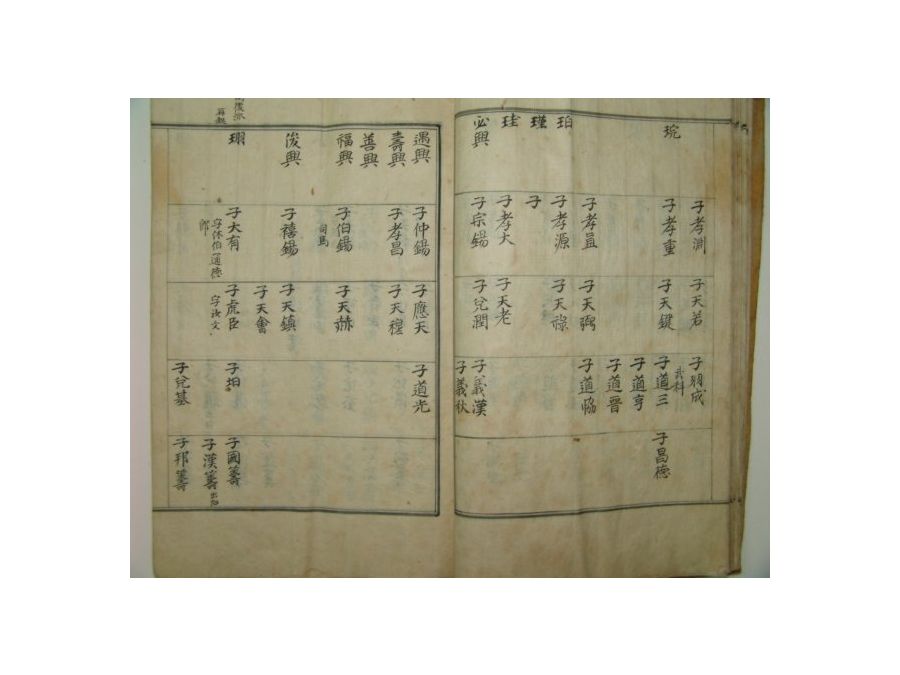 琬
珀
瑾
珪
必興
子孝淵
子孝重
子孝益
子孝源
子
子孝大
子宗錫
子天若
子天鍵
子天弼
子天祿
子天老
子兌潤
子羽成
武科
子道三
子道亨
子道晋
子道恊
子義漢
子義秋
子昌德
遇興
壽興
善興
福興
俊興
珝
子仲錫
子孝昌
子伯錫
司馬
子禧錫
子大有
字休伯 通德
郎
子應天
子天穆
子天赫
子天鎮
子天會
子虎臣
字汝文
子道光
子垍
子兌基
子國籌
子漢籌
子邦籌